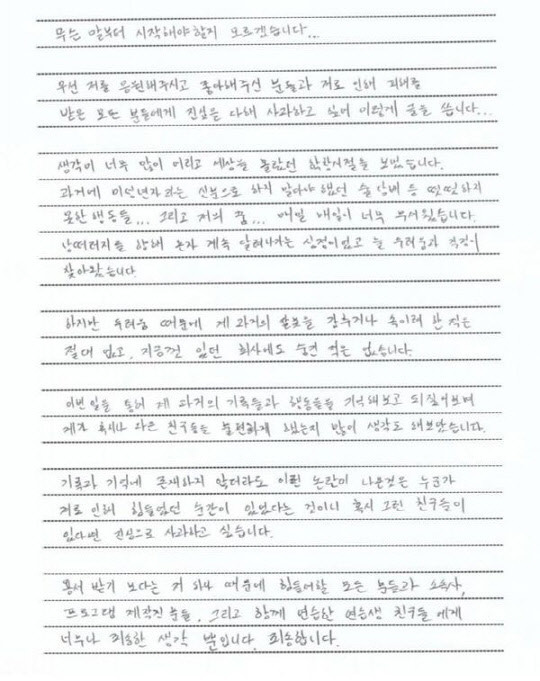 무슨 말부터 시작해야할지 모르겠습니다...
우선 저를 응원해주시고 좋아해주신 분들과 저로 인해 피해를
받은 모든 분들에게 진심을 다해 사과하고 싶어 이렇게 글을 씁니다...
생각이 너무 많이 어리고 세상을 몰랐던 학창시절을 보냈습니다.
과거에 미성년자라는 신분으로 하지 말아야 했던 술 담배 등 떳떳하지
못한 행동들... 그리고 저의 꿈... 매일 매일이 너무 무서웠습니다.
낭떠러지를 향해 혼자 계속 달려나가는 심정이었고 늘 두려움과 걱정이
찾아왔습니다.
하지만 두려움 때문에 제 과거의 잘못을 감추거나 속이려 한 적은
절대 없고, 지금껏 있던 회사에도 숨긴 적은 없습니다.
이번일을 통해 제 과거의 기록들과 행동들을 기억해보고 되짚어보며
제가 혹시나 다른 친구들을 불편하게 했는지 많이 생각도 해보았습니다.
기록과 기억에 존재하지 않더라도 이런 논란이 나온것은 누군가
저로 인해 힘들었던 순간이 있었다는 것이니 혹시 그런 친구들이
있다면 진심으로 사과하고 싶습니다.
용서 받기 보다는 저 하나 때문에 힘들어할 모든 분들과 소속사,
프로그램 제작진분들, 그리고 함께 연습한 연습생 친구들에게
너무나 죄송한 생각 뿐입니다. 죄송합니다.